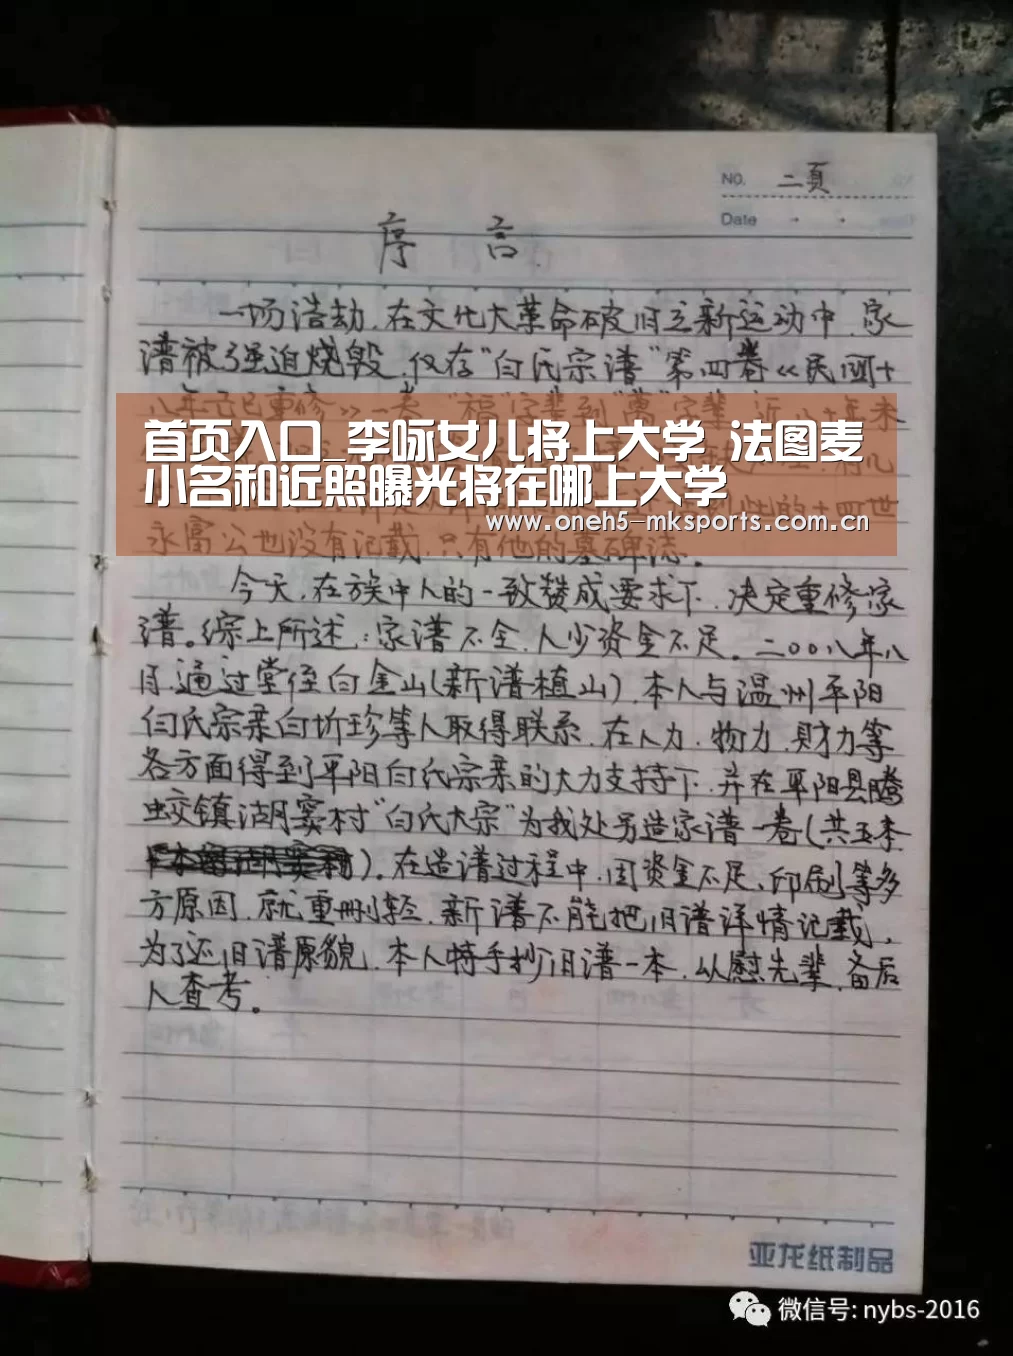 NO. 二頁
Date
序言
一场浩劫.在文化大革命破旧立新运动中.家
谱被强迫烧毁.仅存“白氏宗谱”第四卷《民国十
八年己巳重修》一卷.“福”字辈到“萬”字辈.近八十年来
首页入口_李咏女儿将上大学 法图麦
小名和近照曝光将在哪上大学
的十四世
www.oneh5-mksports.com.cn
永富公也没有记载.只有他的墓碑志。
今天.在族中人的一致赞成要求下.决定重修家
谱。综上所述:家谱不全.人少资金不足。二00八年八
月.通过堂侄白金山(新谱植山).本人与温州平阳
白氏宗亲白圻珍等人取得联系.在人力.物力.财力等
各方面得到平阳白氏宗亲的大力支持下.并在平阳县腾
蛟镇湖窦村“白氏大宗”为我处另造家谱一卷(共五本
).在造谱过程中.因资金不足、印刷等多
方原因.就重删轻.新谱不能把旧谱详情记载,
为了还旧谱原貌.本人特手抄旧谱一本.以慰先辈.备后
人查考。
亚龙纸制品
微信号: nybs-2016